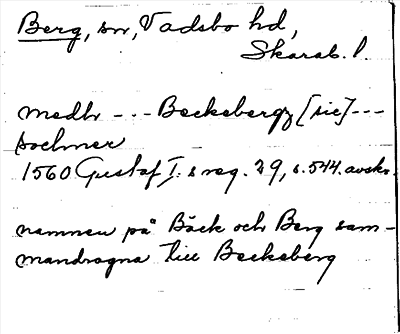 Berg, sn, Vadsbo hd,
Skarab. l.
medh --- Beckebergz [sic] ---
sochner
1560 Gustaf I:s reg. 29, s. 544. avskr.
namnen på Bäck och Berg sam-
mandragna till Beckeberg